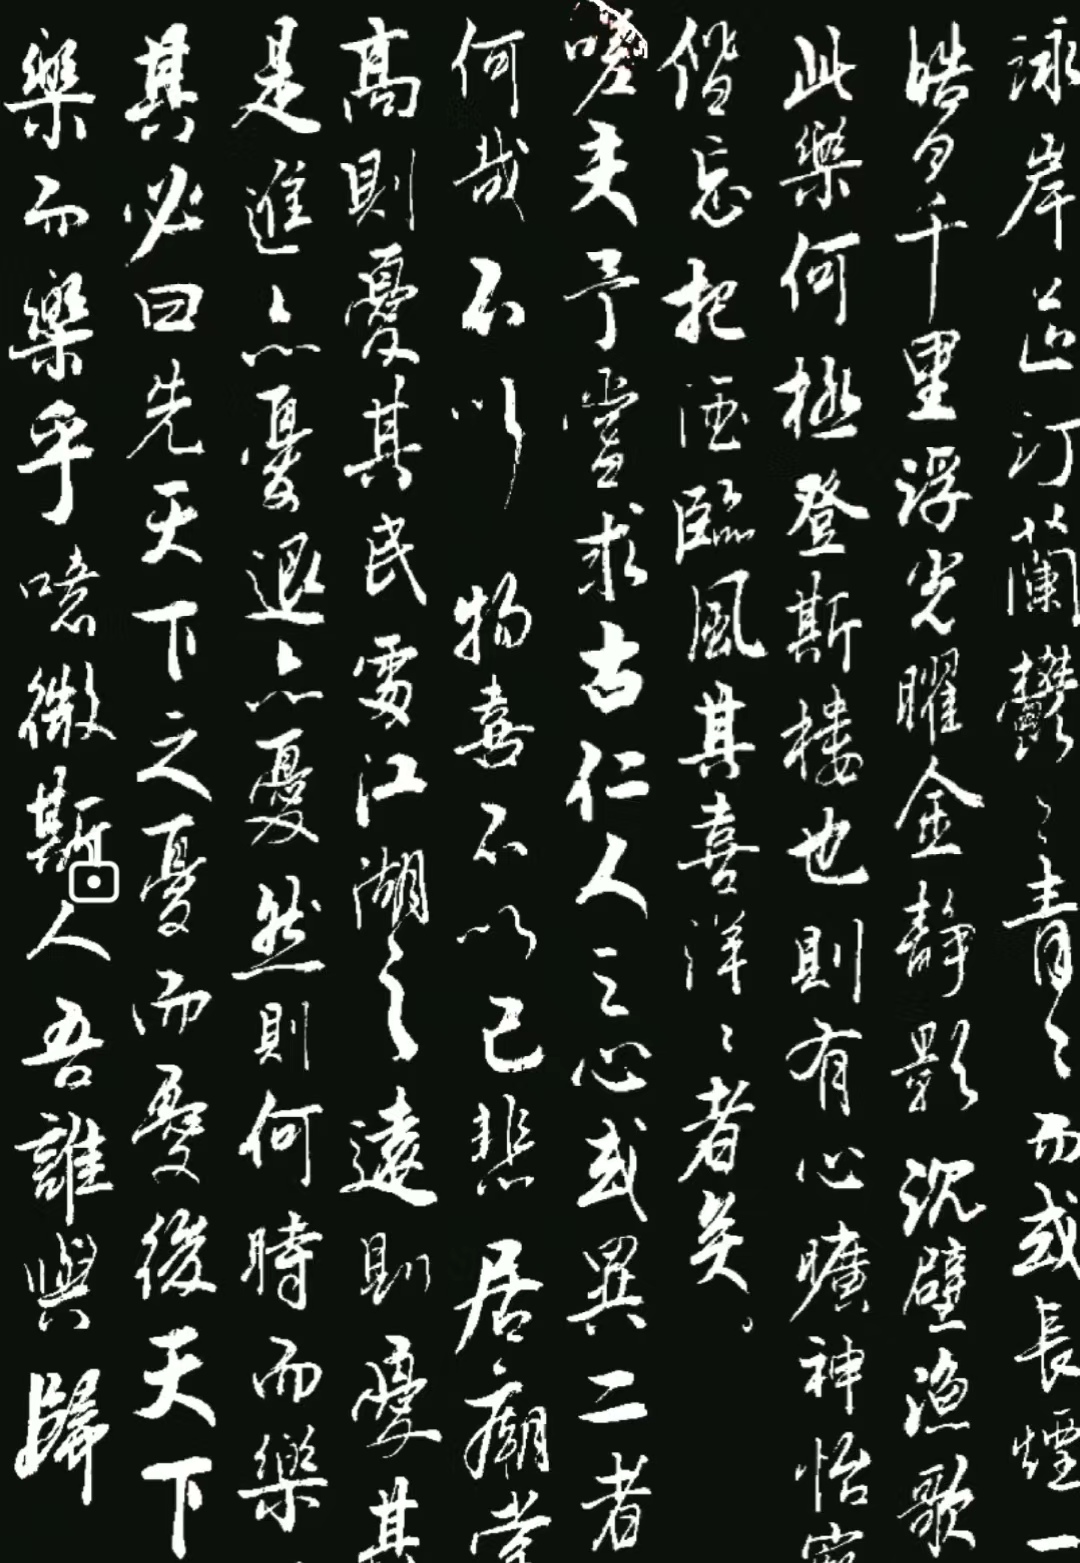 泳岸芷汀蘭鬱〻青〻而或長煙一
皓月千里浮光曜金静影沉璧漁歌
此樂何極登斯樓也則有心曠神怡寵
偕忘把酒臨風其喜洋〻者矣
嗟夫予嘗求古仁人之心或異二者
何哉不以物喜不以己悲居廟堂
高則憂其民處江湖之遠則憂其
是進亦憂退亦憂然則何時而樂
其必曰先天下之憂而憂後天下
樂而樂乎噫微斯人吾誰與歸